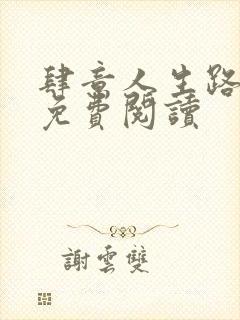 肆意人生路
免費閱讀
謝雲雙